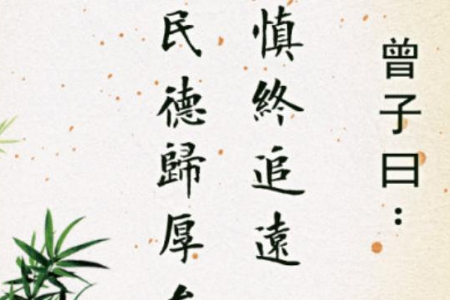 曾子曰：
慎終追遠
民德歸厚